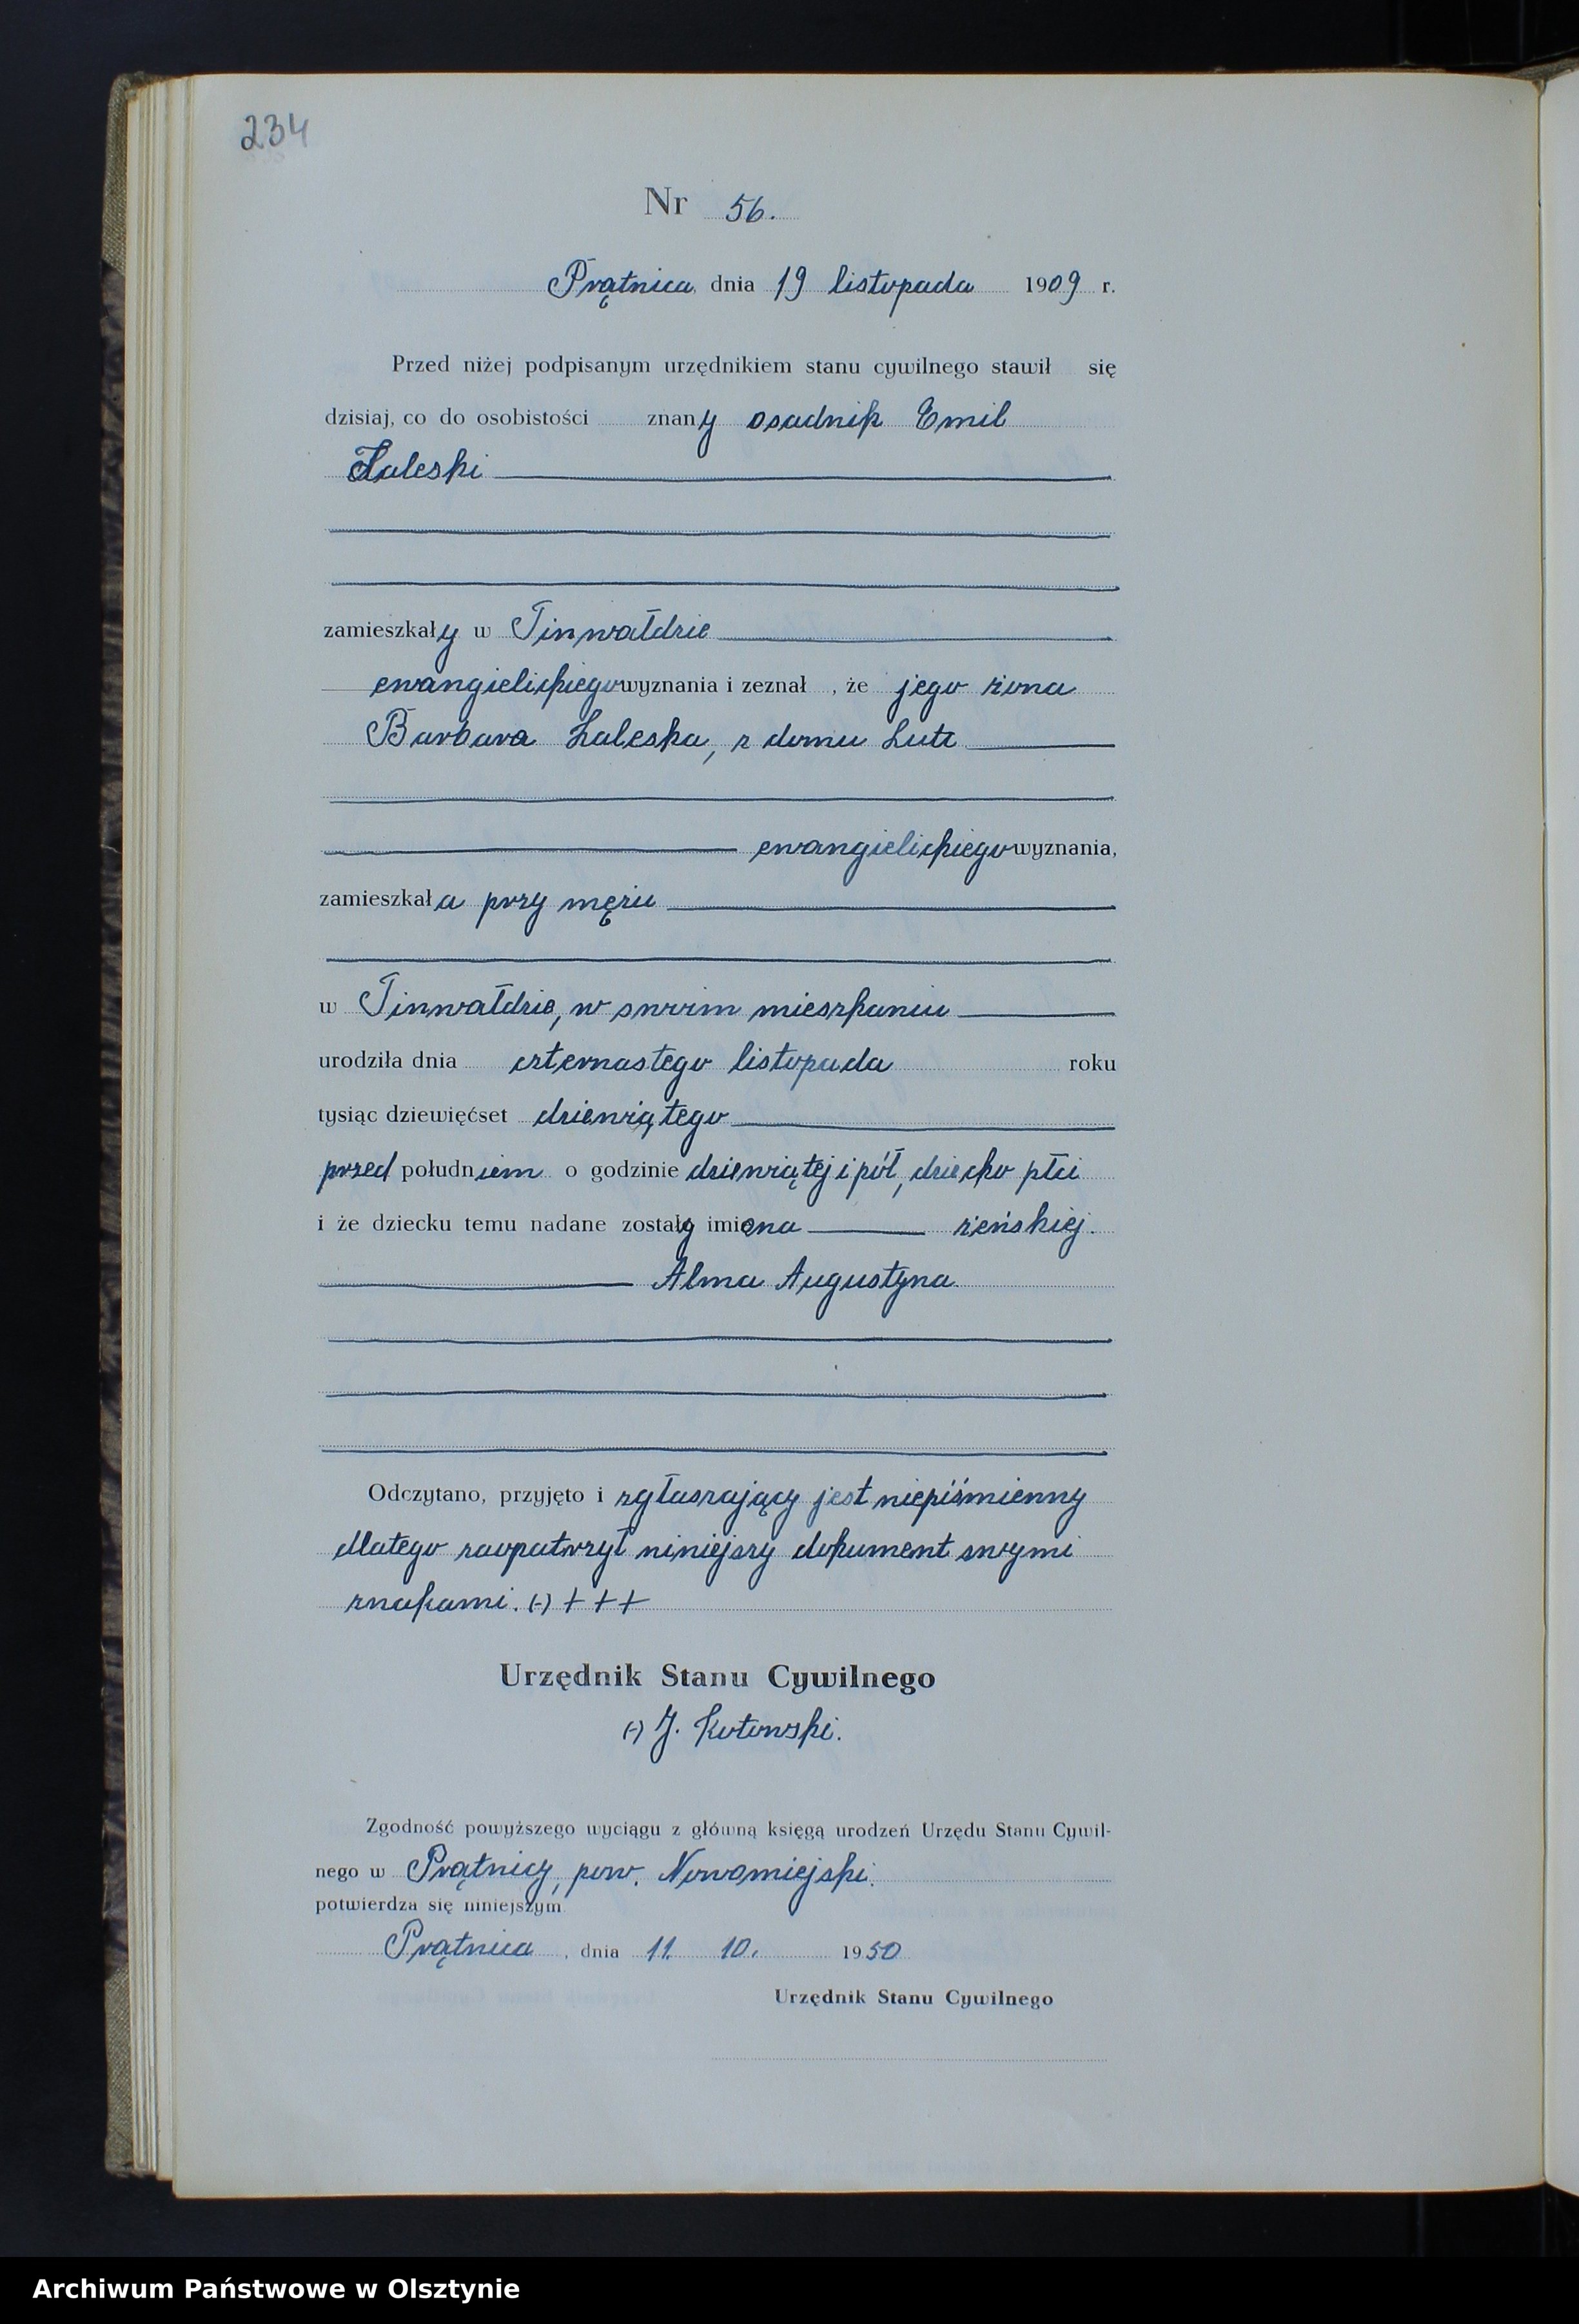 234
Nr 56.
Prątnica, dnia 19 listopada 1909 r.
Przed niżej podpisanym urzędnikiem stanu cywilnego stawił się
dzisiaj, co do osobistości znany osadnik Emil
Zaleski
zamieszkały w Tinwałdzie
ewangielickiego wyznania i zeznał , że jego żona
Barbara Zaleska, z domu Lutz
ewangielickiego wyznania,
zamieszkała przy mężu
w Tinwałdzie, w swoim mieszkaniu
urodziła dnia czternastego listopada roku
tysiąc dziewięćset dziewiątego
przed południem o godzinie dziewiątej i pół, dziecko płci
i że dziecku temu nadane zostały imiona żeńskiej.
Alma Augustyna
Odczytano, przyjęto i zgłaszający jest niepiśmienny
dlatego zaopatrzył niniejszy dokument swymi
znakami. (-) + + +
Urzędnik Stanu Cywilnego
(-) J. Kotowski.
Zgodność powyższego wyciągu z główną księgą urodzeń Urzędu Stanu Cywil-
nego w Prątnicy, pow. Nowomiejski.
potwierdza się niniejszym
Prątnica , dnia 11. 10. 1950
Urzędnik Stanu Cywilnego
Archiwum Państwowe w Olsztynie